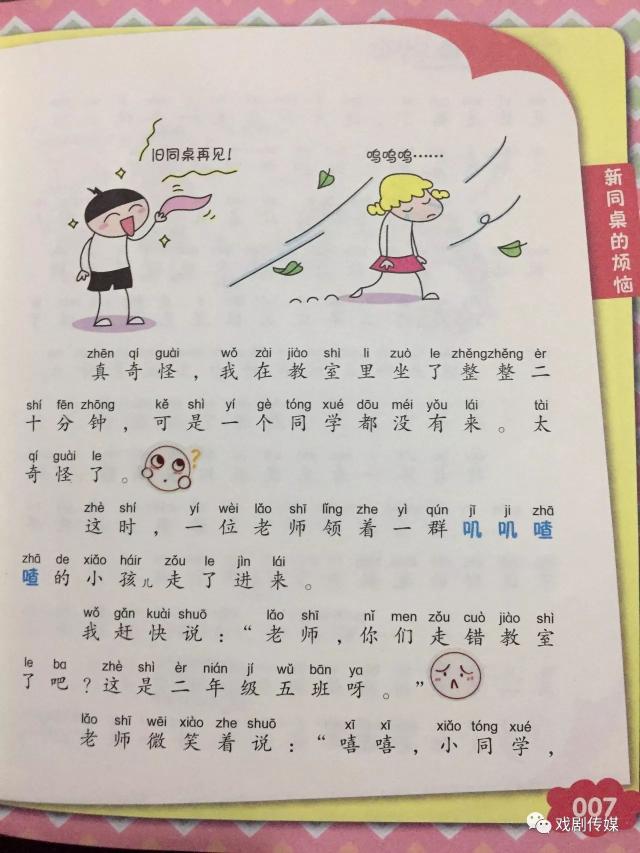 旧同桌再见！
呜呜呜……
新同桌的烦恼
zhēn qí guài wǒ zài jiào shì li zuò le zhěngzhěng èr
真奇怪，我在教室里坐了整整二
shí fēn zhōng kě shì yí gè tóng xué dōu méi yǒu lái tài
十分钟，可是一个同学都没有来。太
qí guài le
奇怪了。
?
zhè shí yí wèi lǎo shī lǐng zhe yì qún jī ji zhā
这时，一位老师领着一群叽叽喳
zhā de xiǎo háir zǒu le jìn lái
喳的小孩儿走了进来。
wǒ gǎn kuài shuō lǎo shī nǐ men zǒu cuò jiào shì
我赶快说：“老师，你们走错教室
le ba zhè shì èr nián jí wǔ bān ya
了吧？这是二年级五班呀。”
lǎo shī wēi xiào zhe shuō xī xī xiǎo tóng xué
老师微笑着说：“嘻嘻，小同学，
007
戏剧传媒